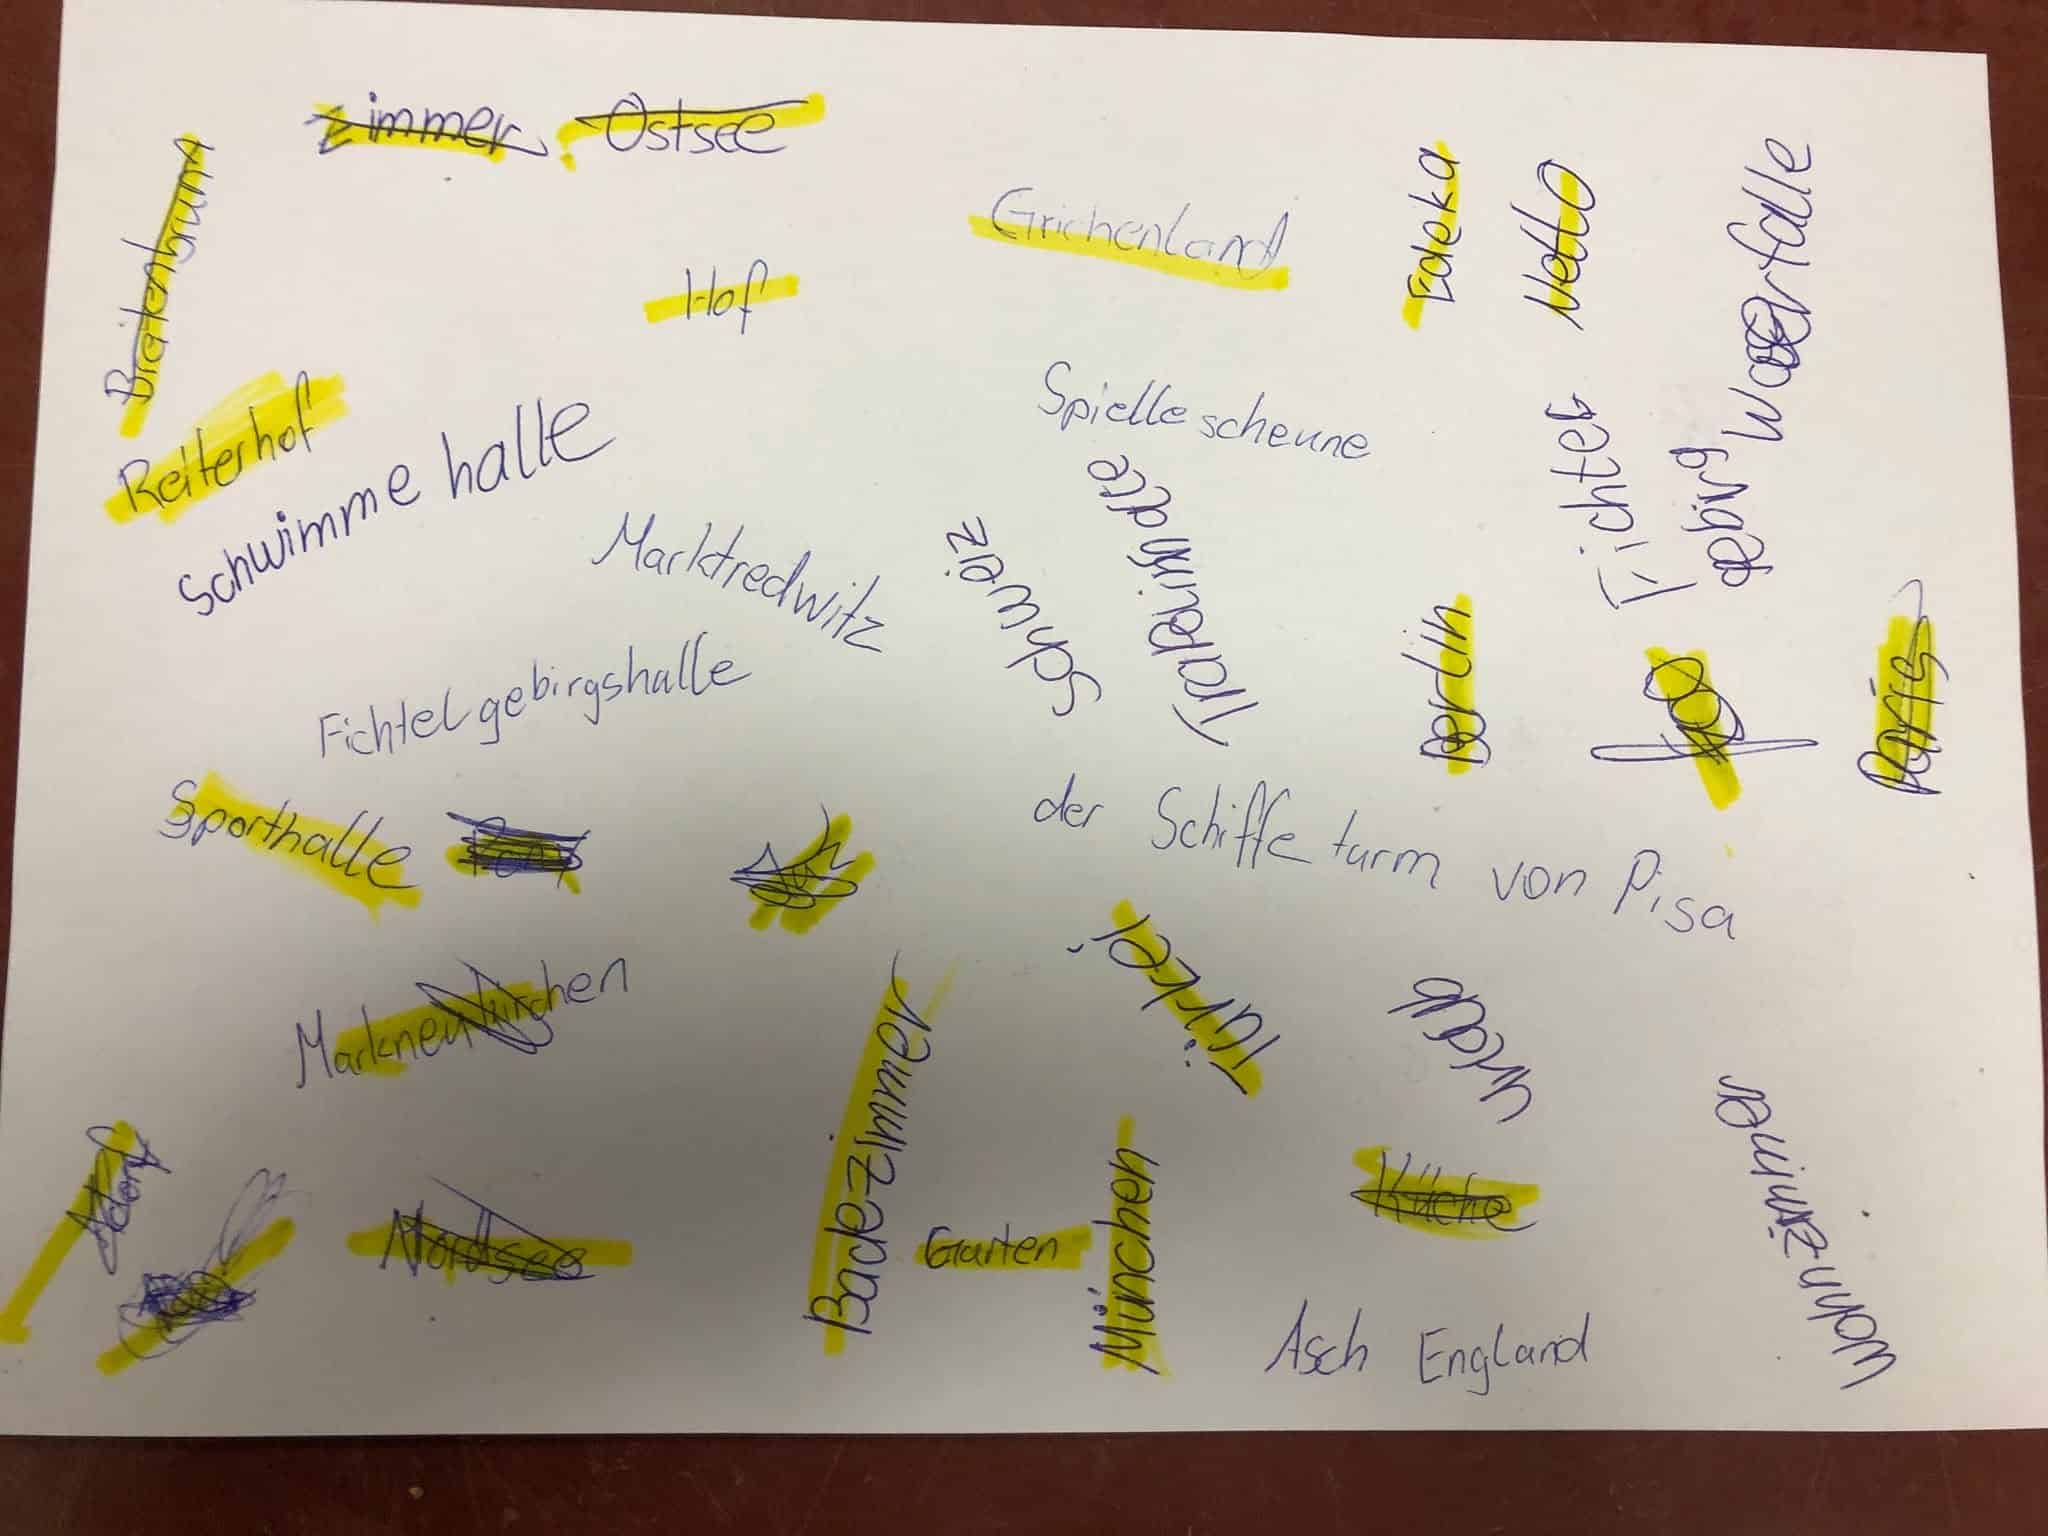 Zimmer
Ostsee
Breitenbrunn
Grichenland
Edeka
Netto
Wasserfälle
Hof
Reiterhof
Schwimme halle
Spielle scheune
Fichtel
gebirg
Marktredwitz
Schweiz
Trapeumalle
Fichtelgebirgshalle
Berlin
Paris
Sporthalle
der Schiffe turm von Pisa
Markneukirchen
Türkei
Urlaub
Adorf
Nordsee
Badezimmer
Garten
München
Küche
Wohnzimmer
Asch
England